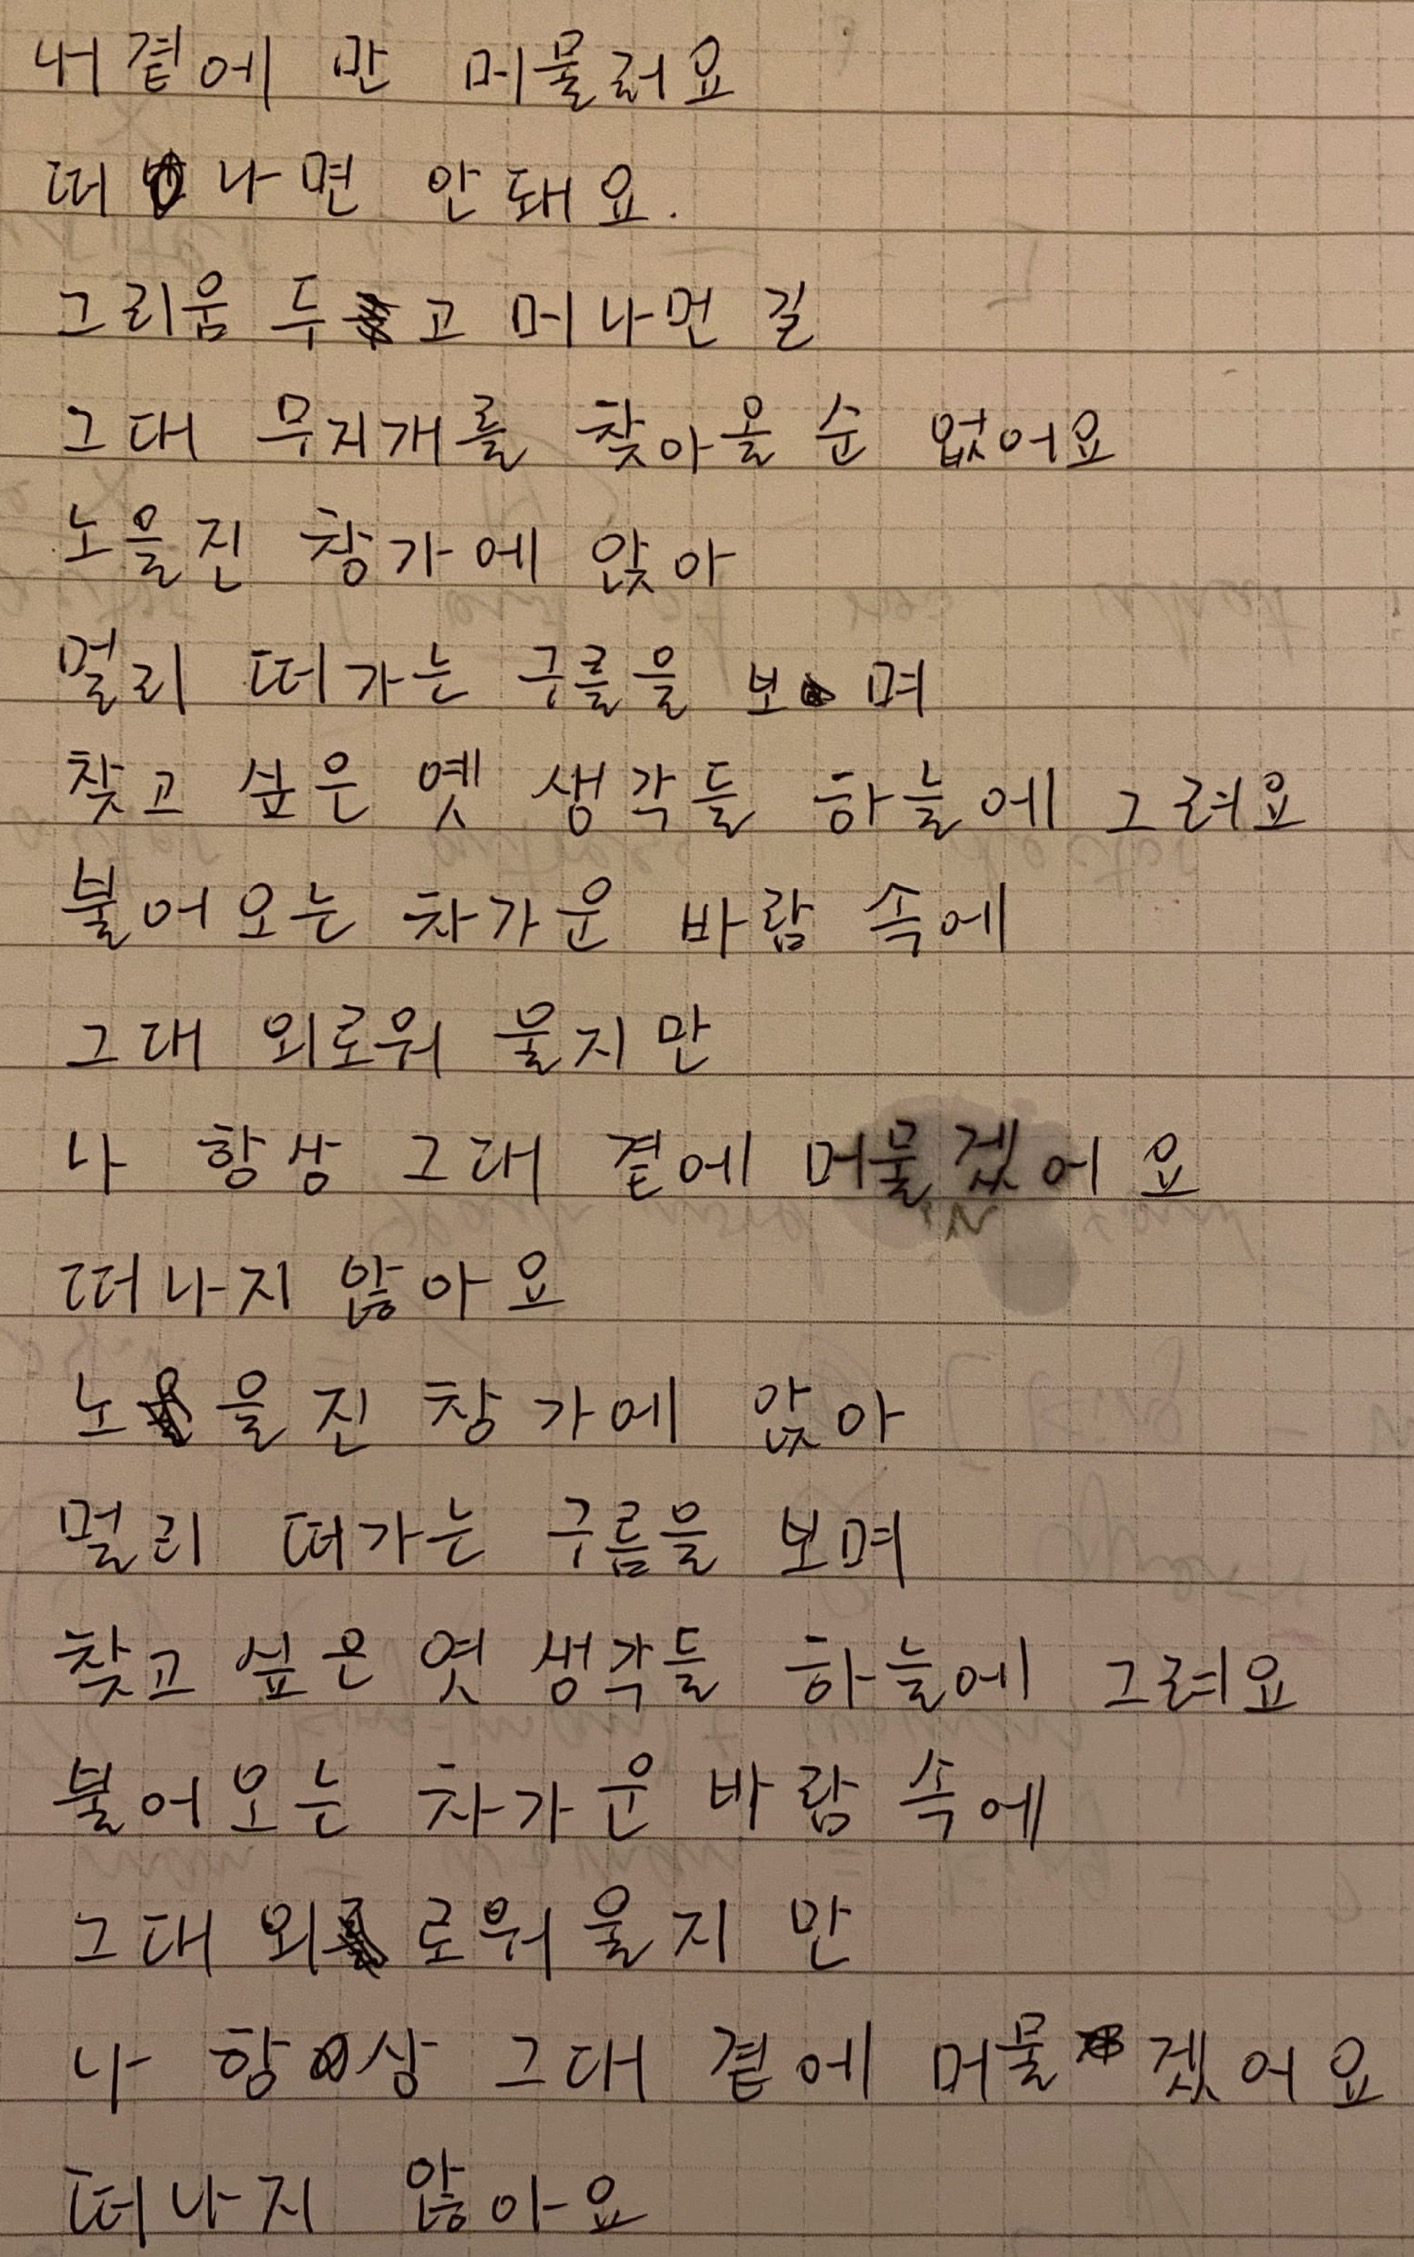 내 곁에 만 머물러요
떠나면 안돼요.
그리움 두고 머나먼 길
그대 무지개를 찾아올 순 없어요
노을진 창가에 앉아
멀리 떠가는 구름을 보며
찾고 싶은 옛 생각들 하늘에 그려요
불어오는 차가운 바람 속에
그대 외로워 울지만
나 항상 그대 곁에 머물겠어요
떠나지 않아요
노을진 창가에 앉아
멀리 떠가는 구름을 보며
찾고 싶은 엿 생각들 하늘에 그려요
불어오는 차가운 바람 속에
그대 외로워 울지 만
나 항상 그대 곁에 머물겠어요
떠나지 않아요